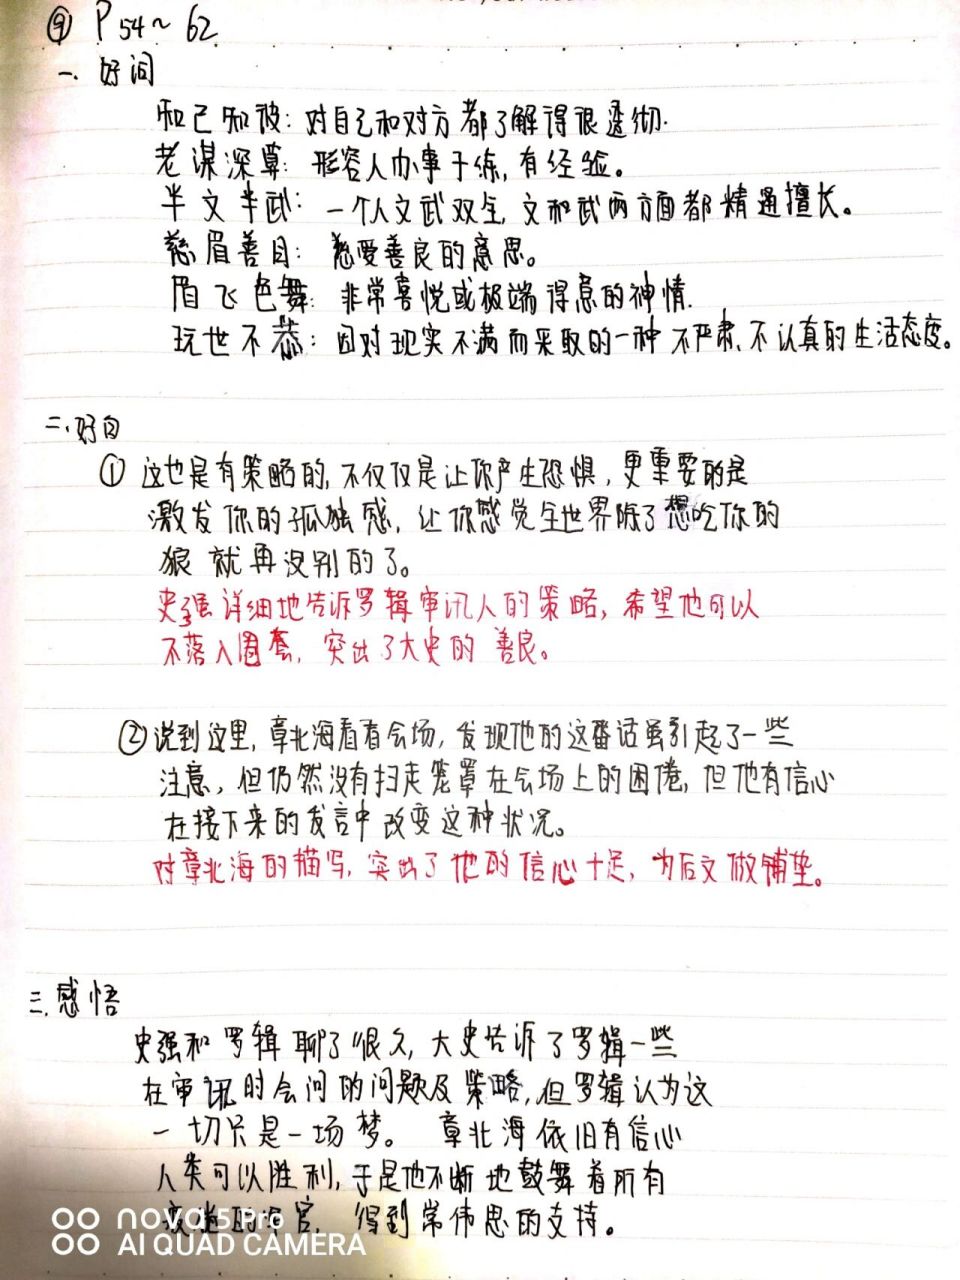 ⑨ P54~62
一、好词
知己知彼：对自己和对方都了解得很透彻.
老谋深算：形容人办事干练，有经验。
半文半武：一个人文武双全，文和武两方面都精通擅长。
慈眉善目：慈爱善良的意思。
眉飞色舞：非常喜悦或极端得意的神情.
玩世不恭：因对现实不满而采取的一种不严肃、不认真的生活态度。
二、好句
① 这也是有策略的，不仅仅是让你产生恐惧，更重要的是
激发你的孤独感，让你感觉全世界除了想吃你的
狼就再没别的了。
史强详细地告诉罗辑审讯人的策略，希望他可以
不落入圈套，突出了大史的善良。
② 说到这里，章北海看看会场，发现他的这番话虽引起了一些
注意，但仍然没有扫走笼罩在会场上的困倦，但他有信心
在接下来的发言中改变这种状况。
对章北海的描写，突出了他的信心十足，为后文做铺垫。
三、感悟
史强和罗辑聊了很久，大史告诉了罗辑一些
在审讯时会问的问题及策略，但罗辑认为这
一切只是一场梦。章北海依旧有信心
人类可以胜利，于是他不断地鼓舞着所有
疲惫的军官，得到常伟思的支持。
nova 5 Pro
AI QUAD CAMERA